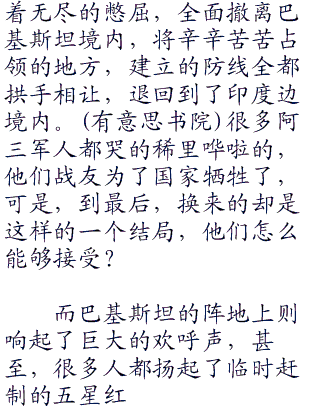 着无尽的憋屈，全面撤离巴
基斯坦境内，将辛辛苦苦占
领的地方，建立的防线全都
拱手相让，退回到了印度边
境内。(有意思书院)很多阿
三军人都哭的稀里哗啦的，
他们战友为了国家牺牲了，
可是，到最后，换来的却是
这样的一个结局，他们怎么
能够接受？
而巴基斯坦的阵地上则
响起了巨大的欢呼声，甚
至，很多人都扬起了临时赶
制的五星红